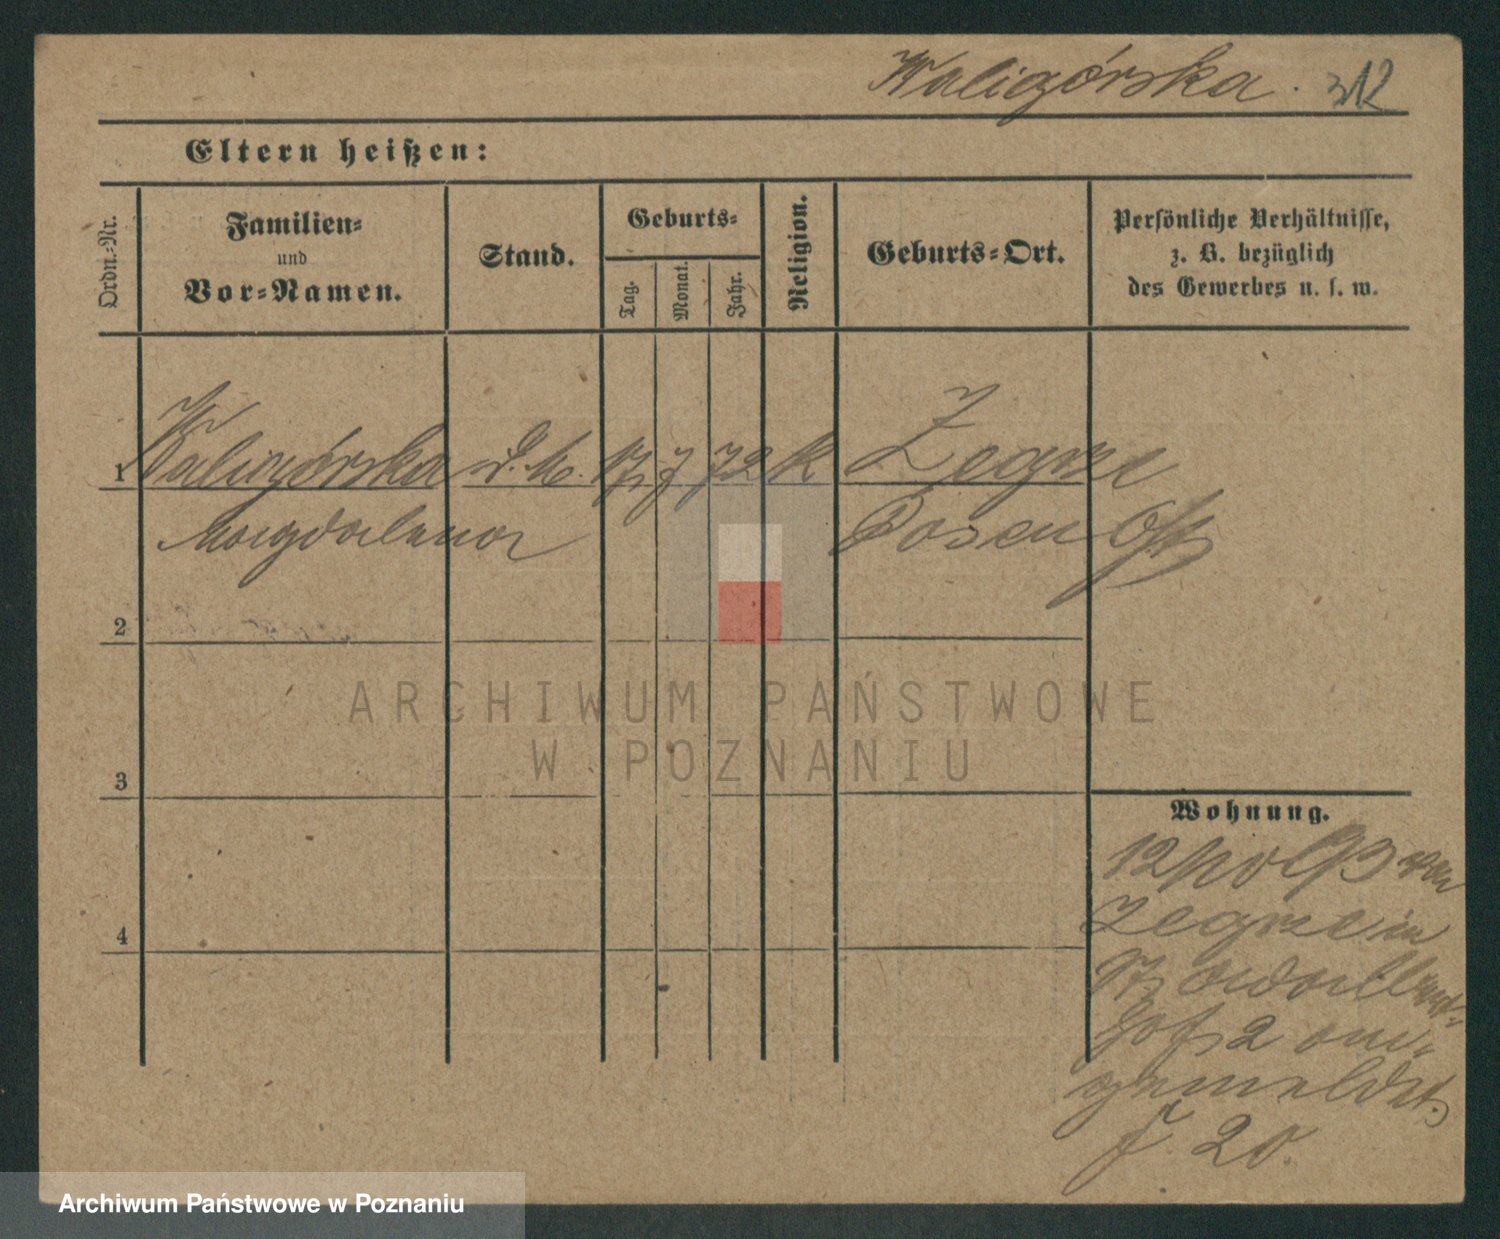 Waligórska. 312
Eltern heißen:
Ordn.-Nr.
Familien-
und
Vor-Namen.
Stand.
Geburts-
Tag.
Monat.
Jahr.
Religion.
Geburts-Ort.
Persönliche Verhältnisse,
z. B. bezüglich
des Gewerbes u. s. w.
1 Waligórska d. M. 17 7 72 K Zegrze
Magdalena Posen Ost
2
3
4
ARCHIWUM PAŃSTWOWE
W POZNANIU
Wohnung.
12 93 von
Zegrze in
2 an-
gemeldet.
J. 20.
Archiwum Państwowe w Poznaniu